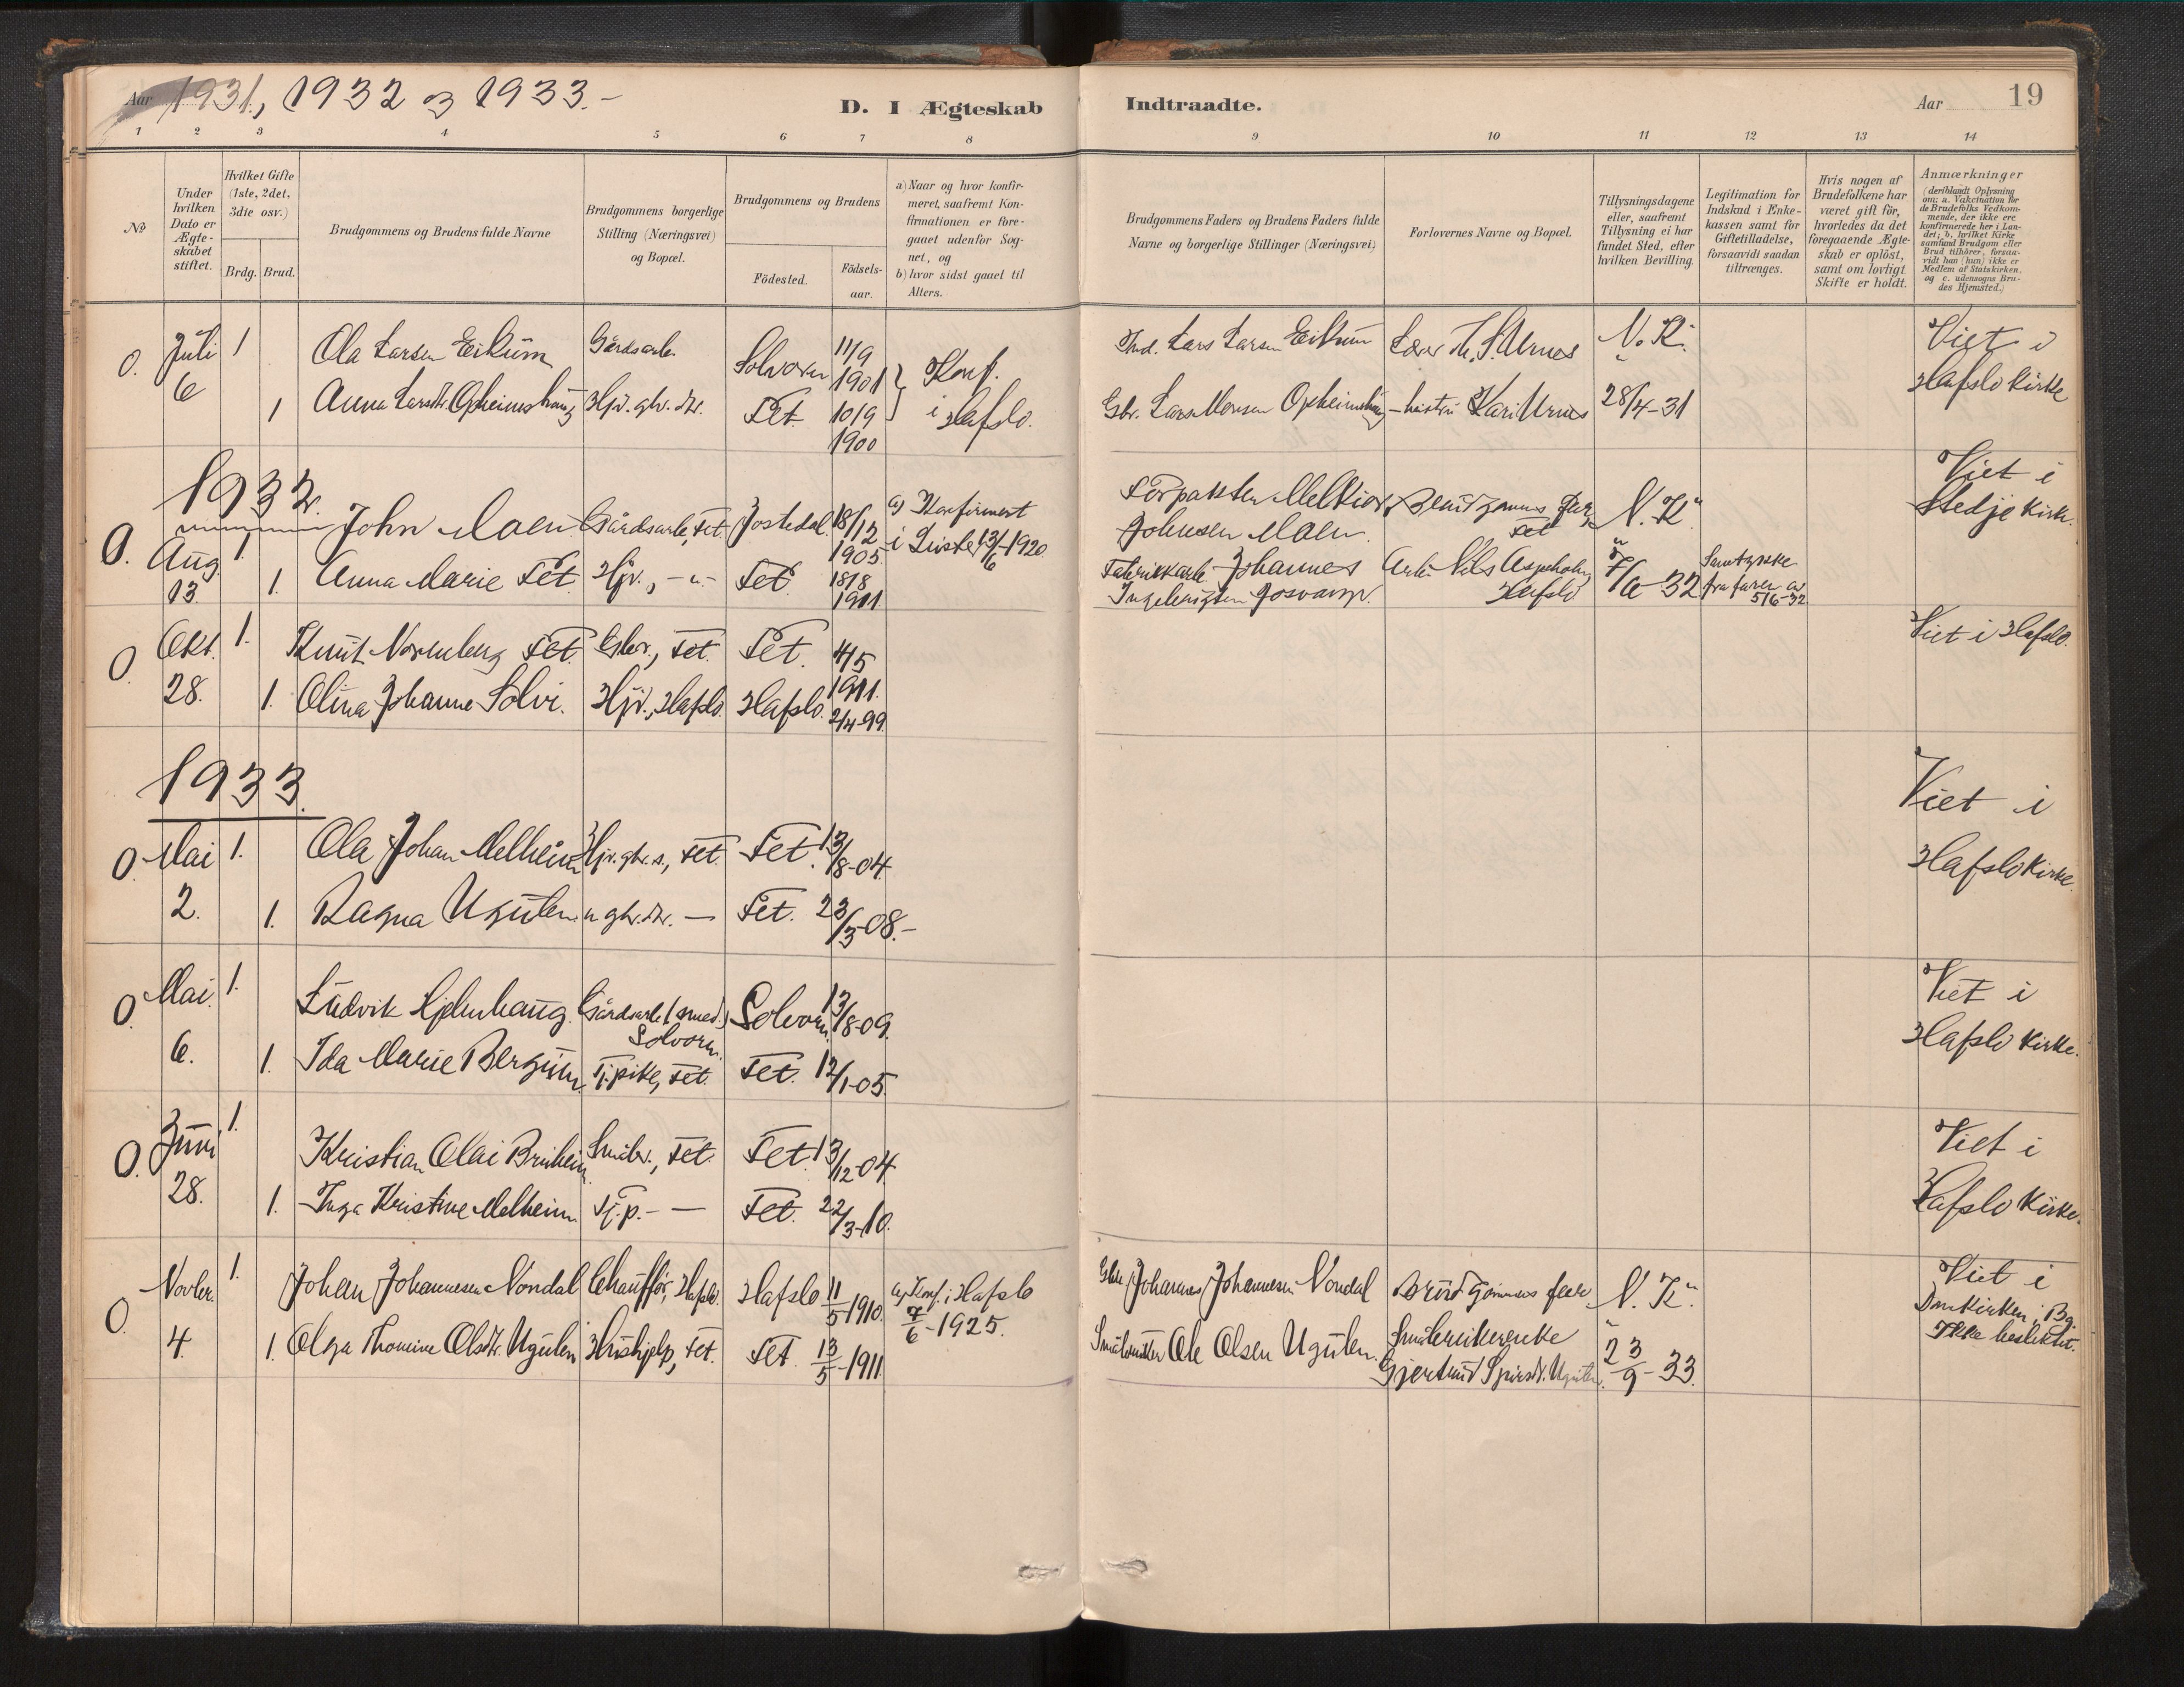 Aar 1931, 1932 og 1933.-
D. I Ægteskab Indtraadte.
Aar 19
1 2 3 4 5 6 7 8 9 10 11 12 13 14
No
Under hvilken Dato er Ægte-skabet stiftet.
Hvilket Gifte (1ste, 2det, 3die osv.)
Brdg. Brud.
Brudgommens og Brudens fulde Navne
Brudgommens borgerlige Stilling (Næringsvei) og Bopæl.
Brudgommens og Brudens
Födested. Födsels-aar.
a) Naar og hvor konfir-meret, saafremt Kon-firmationen er fore-gaaet udenfor Sog-net, og
b) hvor sidst gaaet til Alters.
Brudgommens Faders og Brudens Faders fulde Navne og borgerlige Stillinger (Næringsvei)
Forlovernes Navne og Bopæl.
Tillysningsdagene eller, saafremt Tillysning ei har fundet Sted, efter hvilken Bevilling.
Legitimation for Indskud i Enke-kassen samt for Giftetilladelse, forsaavidt saadan tiltrænges.
Hvis nogen af Brudefolkene har været gift för, hvorledes da det foregaaende Ægte-skab er oplöst, samt om lovligt Skifte er holdt.
Anmærkninger
(deriblandt Oplysning om: a. Vakcination for de Brudefolks Vedkom-mende, der ikke ere konfirmerede her i Lan-det; b. hvilket Kirke samfund Brudgom eller Brud tilhörer, forsaa-vidt han (hun) ikke er Medlem af Statskirken, og c. udensogns Bru-des Hjemsted.)
0. Juli 1 Ola Larsen Eikum Gårdsarb. Solvorn 11/9 1901 Konf. Lars Larsen Eikum Lærer S. Urnes N. K. Viet i
6 1 Anna Larsdtr. Opheimshaug Hjv. gbr. dtr. Fet. 10/9 1900 i Hafslo. Gbr. Lars Monsen Opheimshaug hustru Kari Urnes 28/4-31 Hafslo kirke
1932.
0. Aug. 1. John Moen Gårdsarb., Fet. Jostedal 18/12 1905. a) Konfirmert i Luster 13/6-1920 Forpakter Melkior Johnsen Moen. Brudgommens far, Fet N. K. Viet i Stedje kirk.
13. 1. Anna Marie Fet. Hjv., -"- Fet. 18/8 1911 Fabrikkarb. Johannes Ingebrigtsen Josvanger. Arb. Nils Aspeholm, Hafslo 7/6-32 Samtykke fra faren av 5/6-32
0. Okt. 1. Knut Norenberg Fet. Gbr., Fet. Fet. 4/5 1911. Viet i Hafslo.
28. 1. Olina Johanne Solvi. Hjv., Hafslo. Hafslo. 2/4-99
1933.
0. Mai 1. Ola Johan Melheim Hjv. gbr. s., Fet. Fet. 13/8-04. Viet i
2. 1. Ragna Ugulen " gbr. dtr. — Fet. 23/3-08.- Hafslo kirke.
0. Mai. 1. Ludvik Hjelmhaug. Gårdsarb. (smed.) Solvorn. Solvorn. 13/8-09. Viet i
6. 1. Ida Marie Bergum. Tj.pike, Fet. Fet. 12/1-05. Hafslo kirke.
0. Juni 1. Kristian Olai Bruheim Småbr., Fet. Fet. 13/12-04. Viet i
28. 1. Inga Kristine Melheim Tj.p. - — Fet. 22/3-10. Hafslo kirke.
0. Novbr. 1. Johan Johannesen Nondal Chauffør, Hafslo. Hafslo 11/5-1910. a) Konf. i Hafslo 7/6-1925. Gbr. Johannes Johannesen Nondal Brudgommens far N. K. Viet i Domkirken i Bg.
4. 1. Olga Thomine Olsdtr. Ugulen Hushjelp, Fet. Fet. 13/5-1911. Ole Olsen Ugulen. Småbrukerenke Gjertrud Ugulen. 23/9-33. Ikke beslektet.